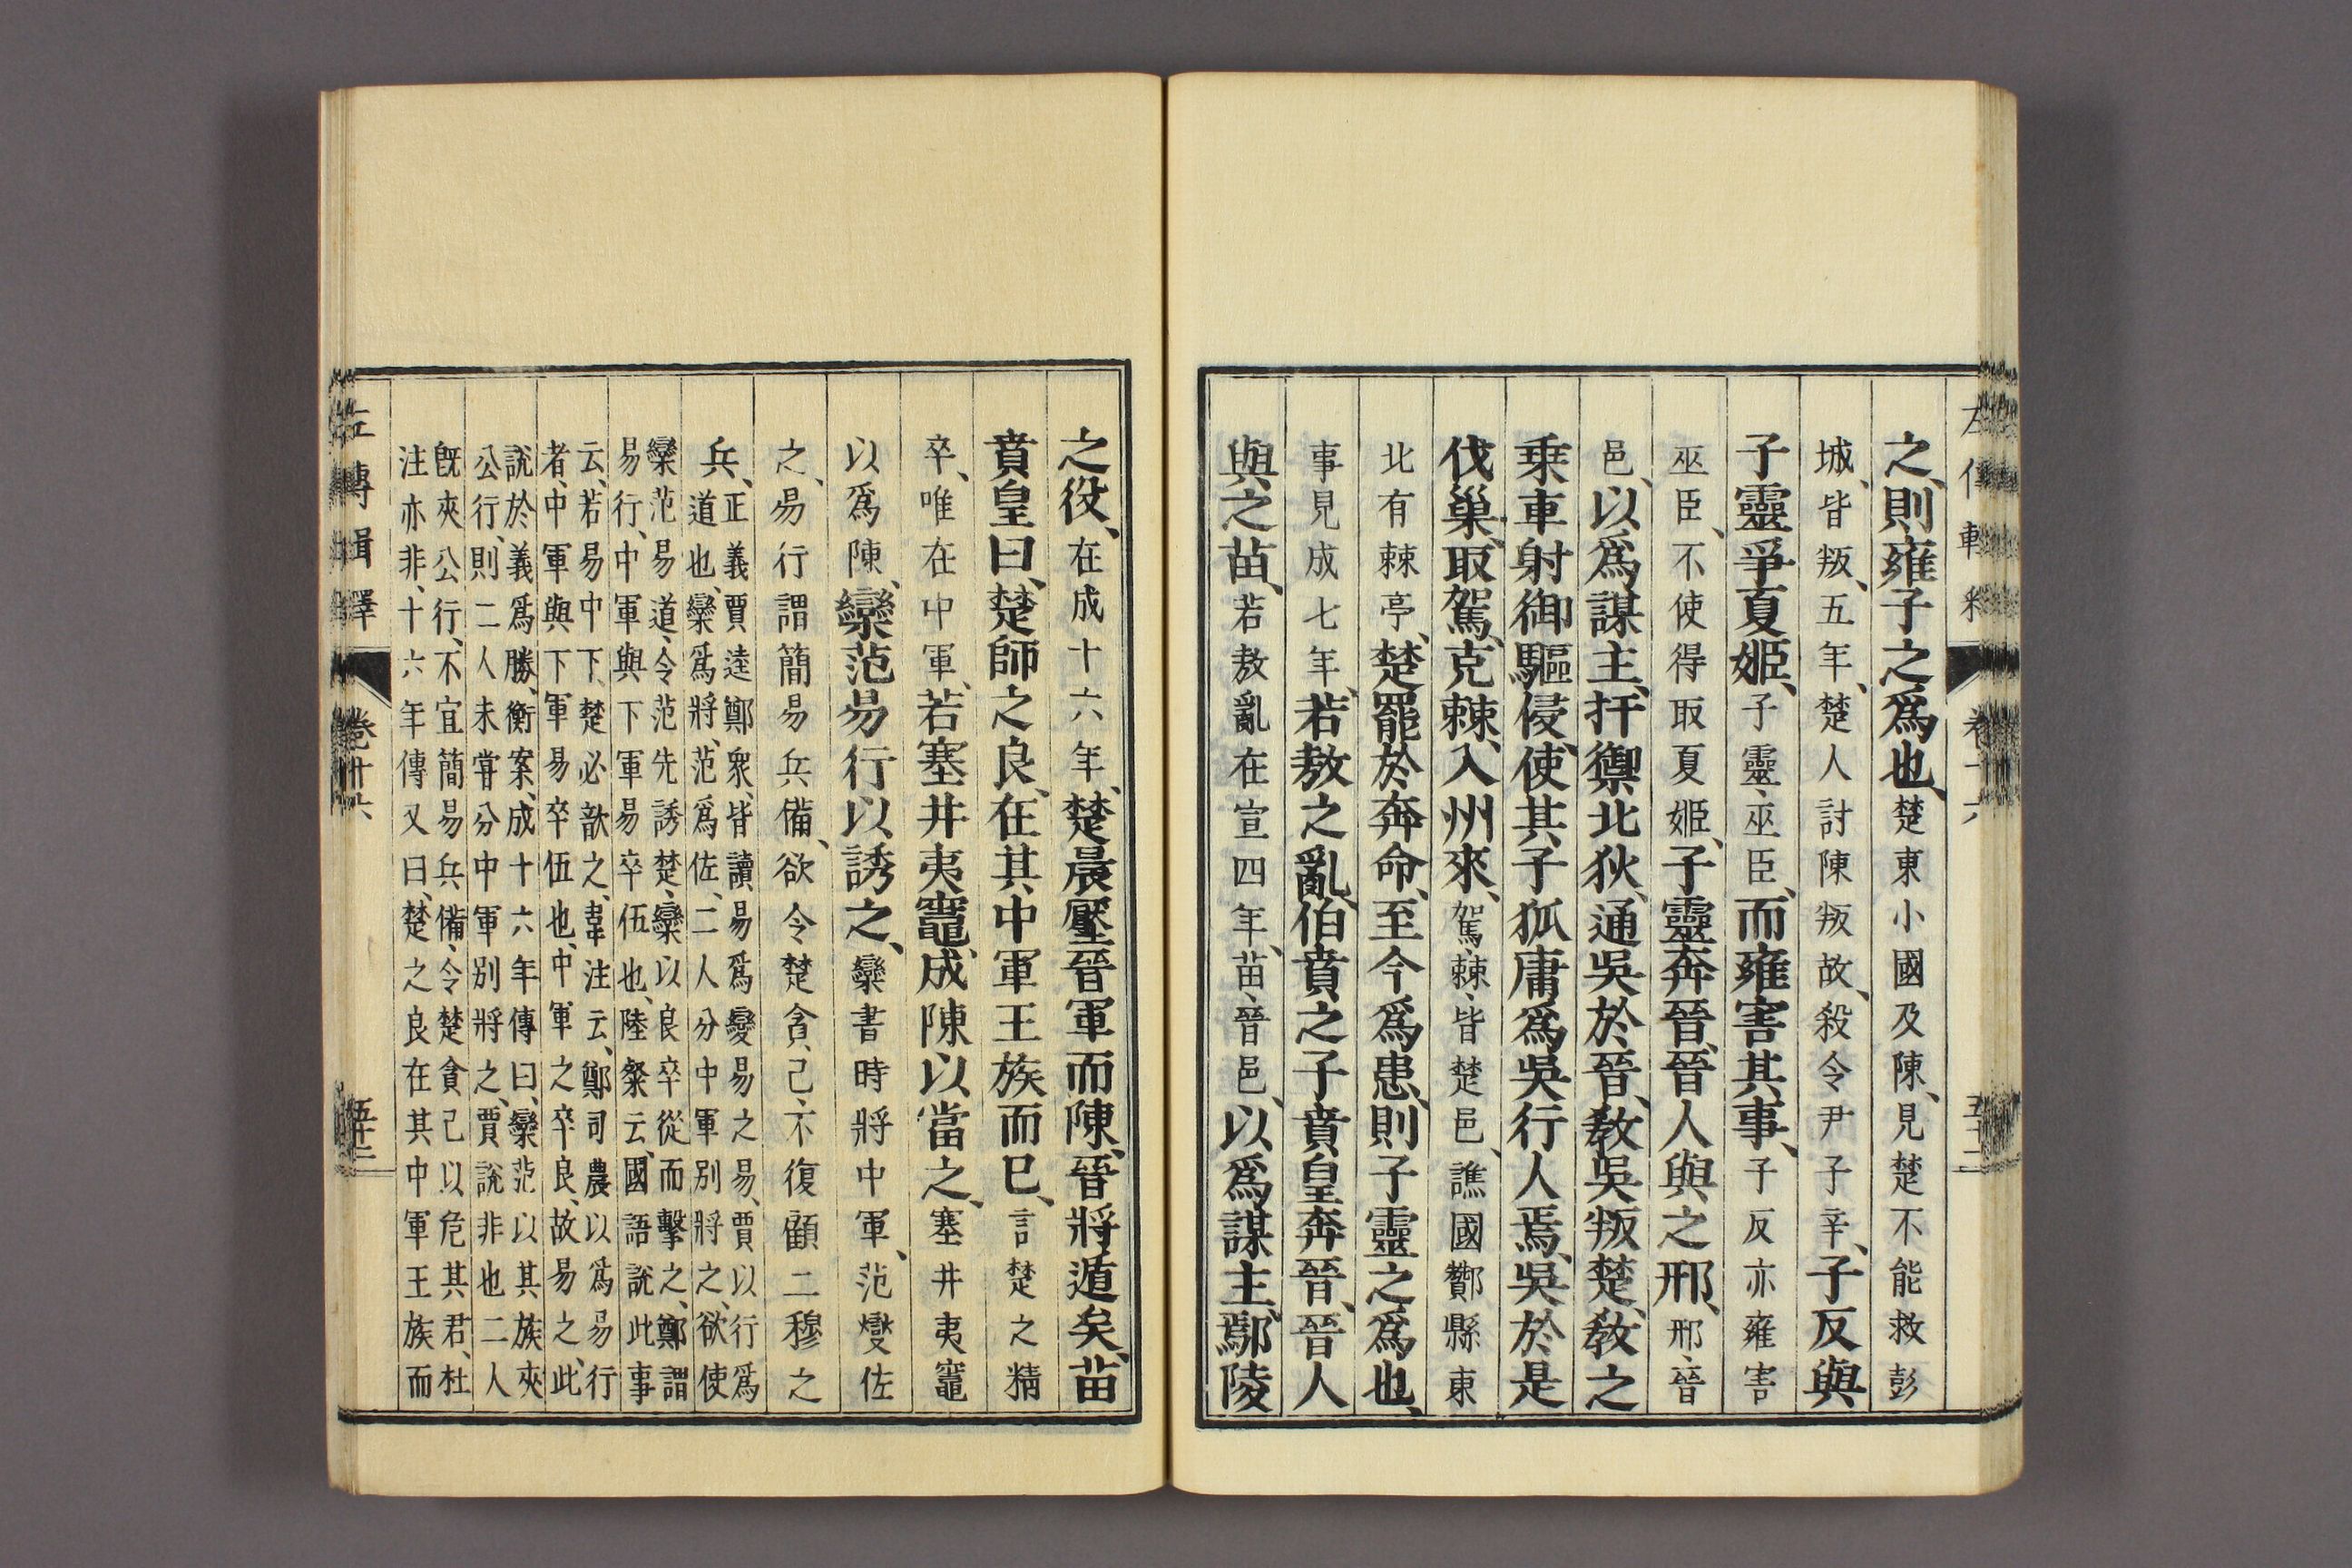 之、則雍子之爲也、楚東小國及陳、見楚不能救彭
城、皆叛、五年、楚人討陳叛故、殺令尹子辛、子反與
子靈爭夏姬、子靈、巫臣、而雍害其事、子反亦雍害
巫臣、不使得取夏姬、子靈奔晉、晉人與之邢、邢、晉
邑、以爲謀主、扞禦北狄、通吳於晉、敎吳叛楚、敎之
乗車射御驅侵、使其子狐庸爲吳行人焉、吳於是
伐巢、取駕、克棘、入州來、駕、棘、皆楚邑、譙國酇縣東
北有棘亭、楚罷於奔命、至今爲患、則子靈之爲也、
事見成七年、若敖之亂、伯賁之子賁皇奔晉、晉人
與之苗、若敖亂在宣四年、苗、晉邑、以爲謀主、鄢陵
之役、在成十六年、楚晨壓晉軍而陳、晉將遁矣、苗
賁皇曰、楚師之良、在其中軍王族而已、言楚之精
卒、唯在中軍、若塞井夷竈、成陳以當之、塞井夷竈
以爲陳、欒范易行以誘之、欒書時將中軍、范燮佐
之、易行謂簡易兵備、欲令楚貪己、不復顧二穆之
兵、正義賈逵鄭衆、皆讀易爲變易之易、賈以行爲
道也、欒爲將、范爲佐、二人分中軍別將之、欲使
欒范易道、令范先誘楚、欒以良卒從而擊之、鄭謂
易行、中軍與下軍易卒伍也、陸粲云、國語說此事
云、若易中下、楚必歆之、韋注云、鄭司農以爲易行
者、中軍與下軍易卒伍也、中軍之卒良、故易之、此
說於義爲勝、衡案、成十六年傳曰、欒范以其族夾
公行、則二人未甞分中軍別將之、賈說非也二人
旣夾公行、不宜簡易兵備、令楚貪己以危其君、杜
注亦非、十六年傳又曰、楚之良在其中軍王族而
左傳輯釋
卷十六
五十二